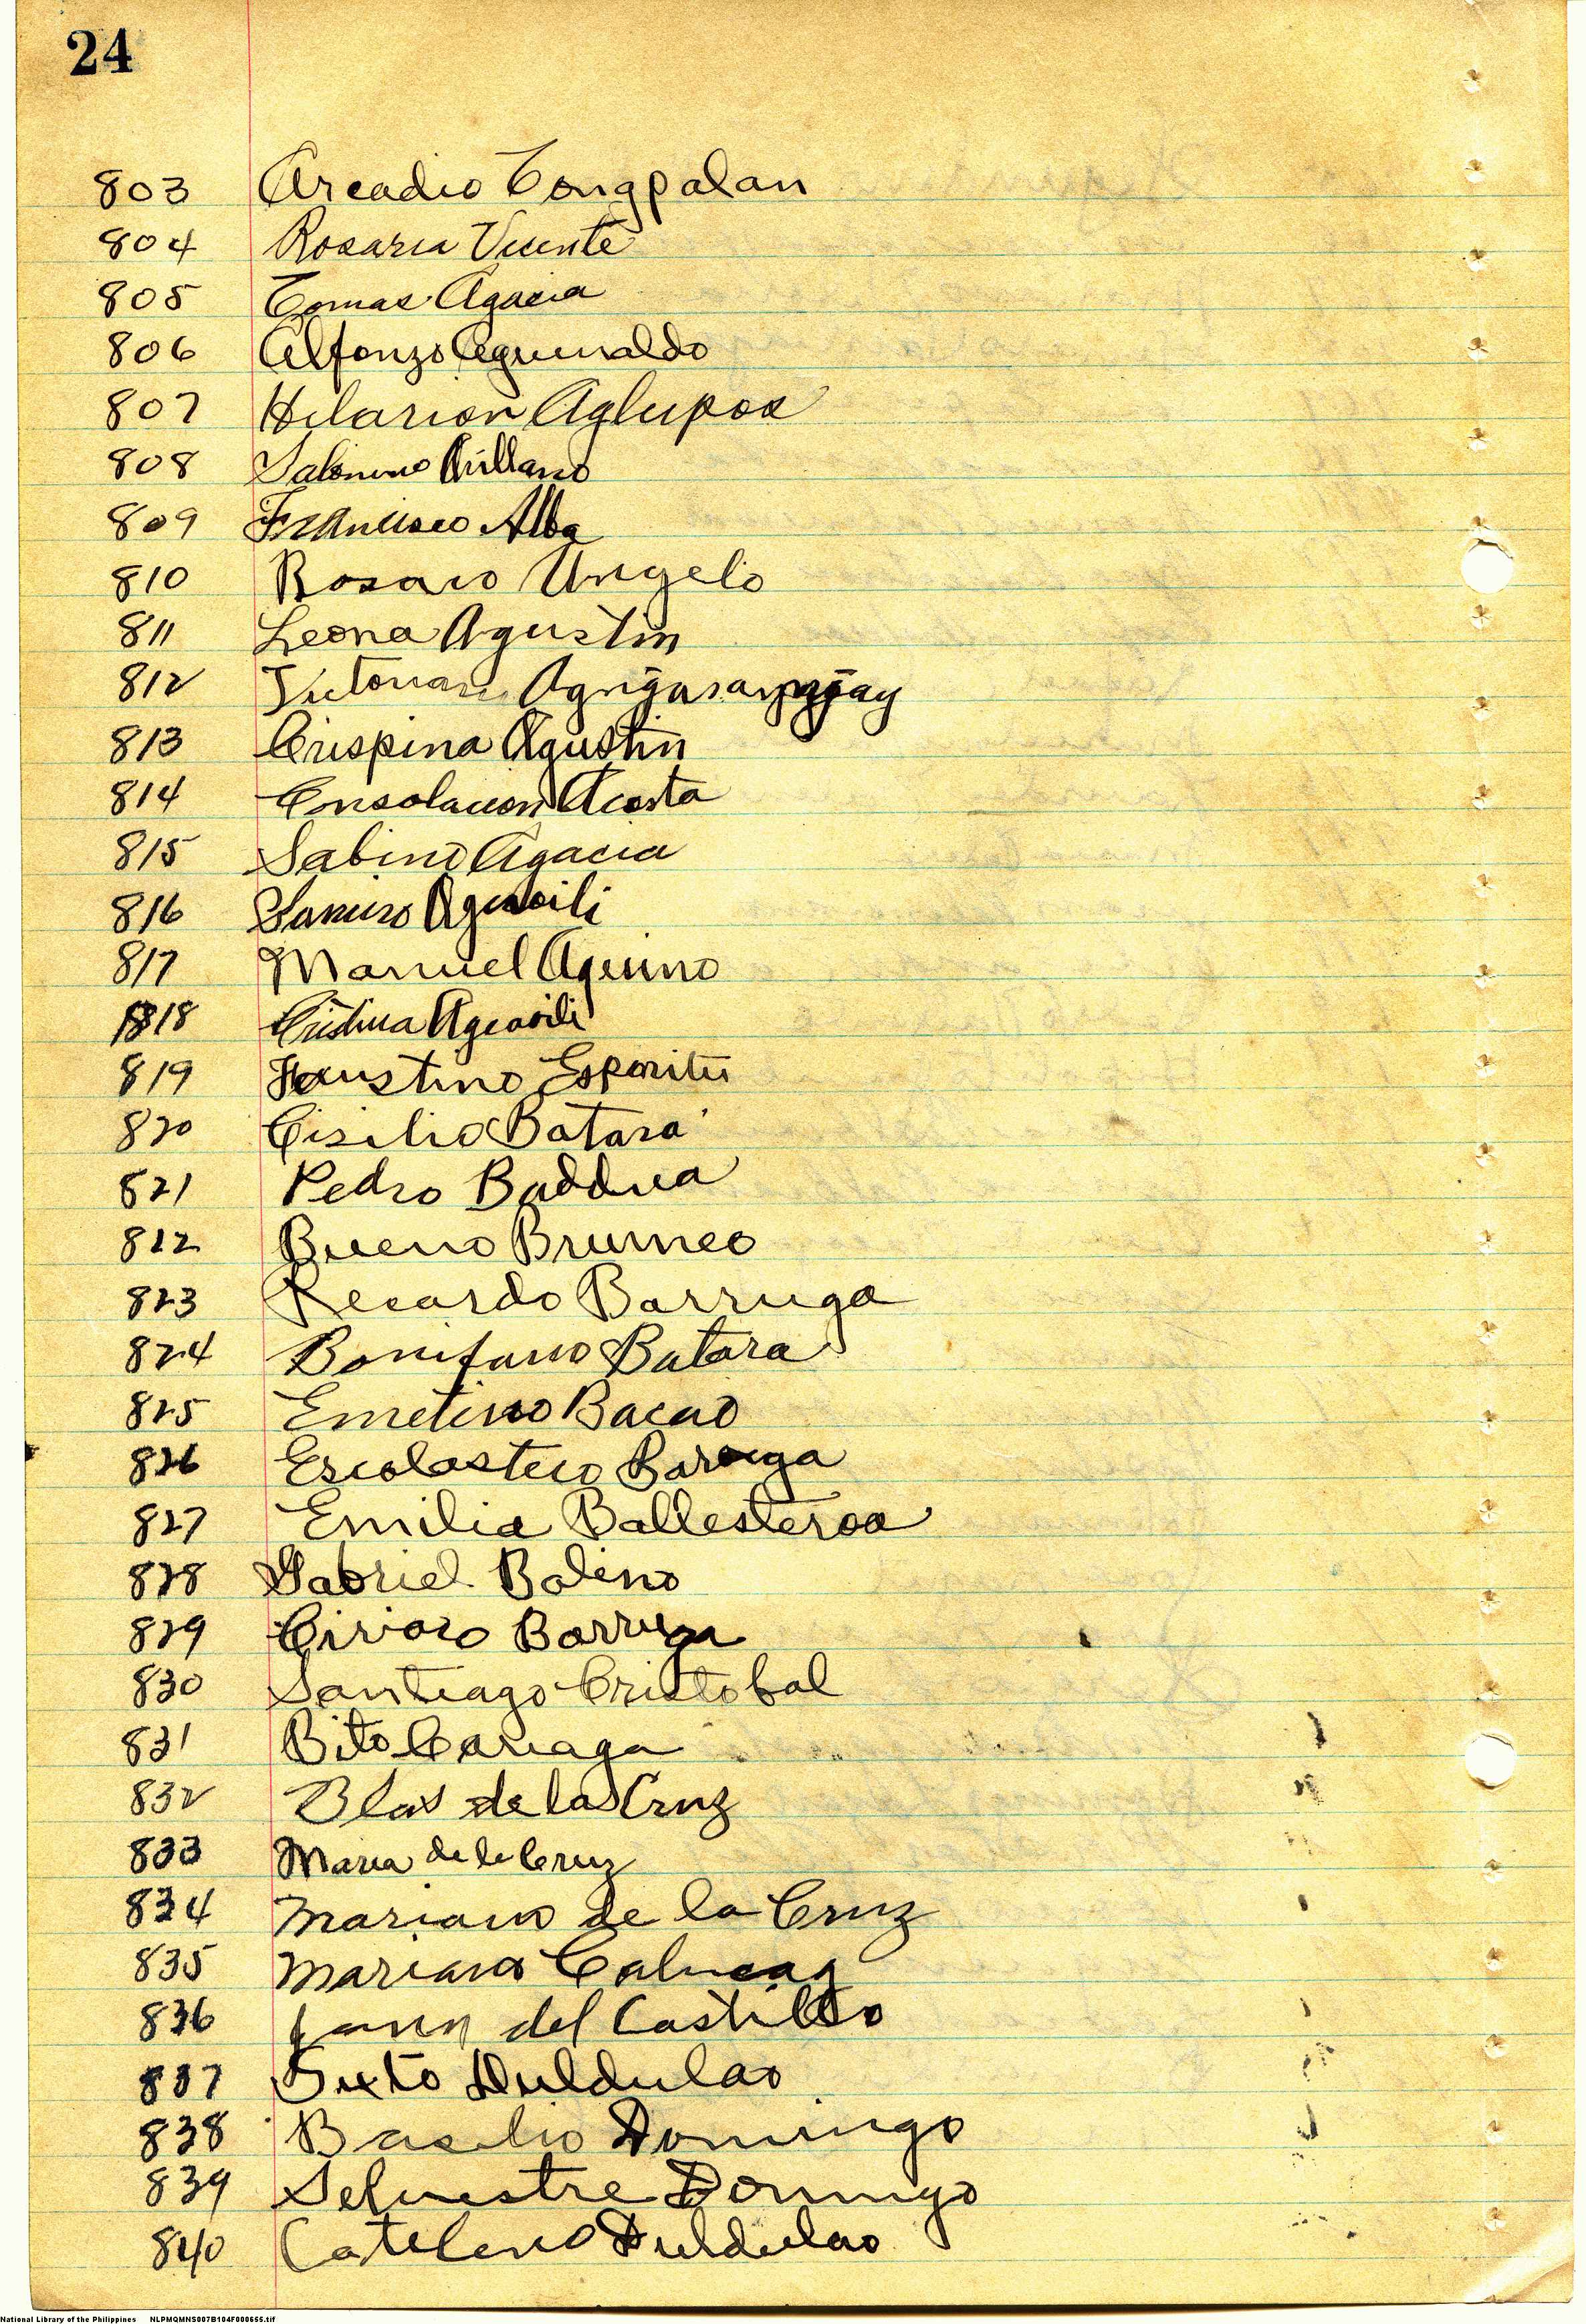 24
803 Arcadio Tongpalan
804 Rosaria Vicente
805 Tomas Agacia
806 Alfonzo Aguinaldo
807 Hilarion Aglupos
808 Arillano
809 Francisco Alba
810 Rosario Ungelo
811 Leona Agustin
812
813 Crispina Agustin
814 Consolacion Acosta
815 Sabino Agacia
816
817 Manuel Aquino
818 Cristina
819 Faustino Espiritu
820 Cisilio Batara
821 Pedro Baddua
812 Bueno Brumeo
823 Recardo Barruga
824 Bonifacio Batara
825 Emeterio Bacao
826 Escolastico Barruga
827 Emilia Ballesteros
828 Gabriel Baleno
829 Barruga
830 Santiago Cristobal
831 Bito Cariaga
832 Blas de la Cruz
833 Maria de la Cruz
834 Mariano de la Cruz
835 Mariano
836 Juan del Castillo
837 Sixto Duldulao
838 Basilio Domingo
839 Selvestre Domingo
840 Cateleno Duldulao
National Library of the Philippines NLPMQMNS007B104F000655.tif